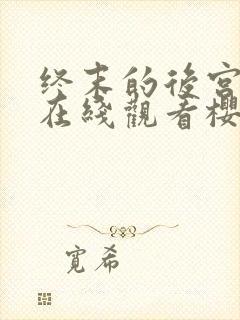 终末的後宫
在綫觀看櫻
寬希